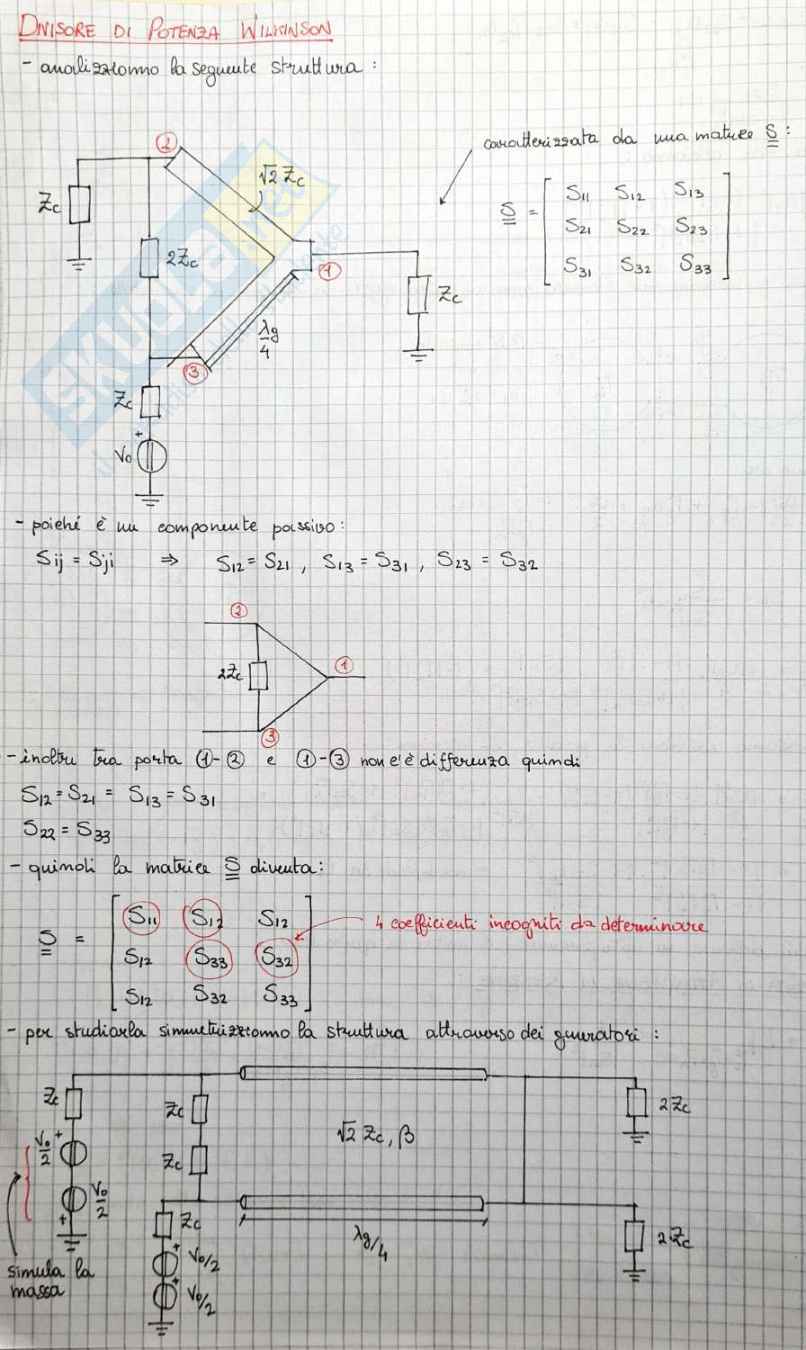 DIVISORE DI POTENZA WILKINSON
- analizziamo la seguente struttura :
caratterizzata da una matrice S :
②
√2 Zc
Zc
2Zc
①
Zc
S = [ S11 S12 S13
S21 S22 S23
S31 S32 S33 ]
λg/4
③
Zc
+
V0
SKUOLA.net
- poiché è un componente passivo :
Sij = Sji ⇒ S12 = S21 , S13 = S31 , S23 = S32
②
2Zc
①
③
- inoltre tra porta ①-② e ①-③ non c'è differenza quindi
S12 = S21 = S13 = S31
S22 = S33
- quindi la matrice S diventa :
S = [ S11 S12 S12
S12 S33 S32
S12 S32 S33 ]
4 coefficienti incogniti da determinare
- per studiarla simmetrizziamo la struttura attraverso dei generatori :
Zc
Zc
2Zc
V0/2 +
Zc
√2 Zc, β
V0/2
+
Zc
λg/4
+ V0/2
+ V0/2
2Zc
simula la
massa